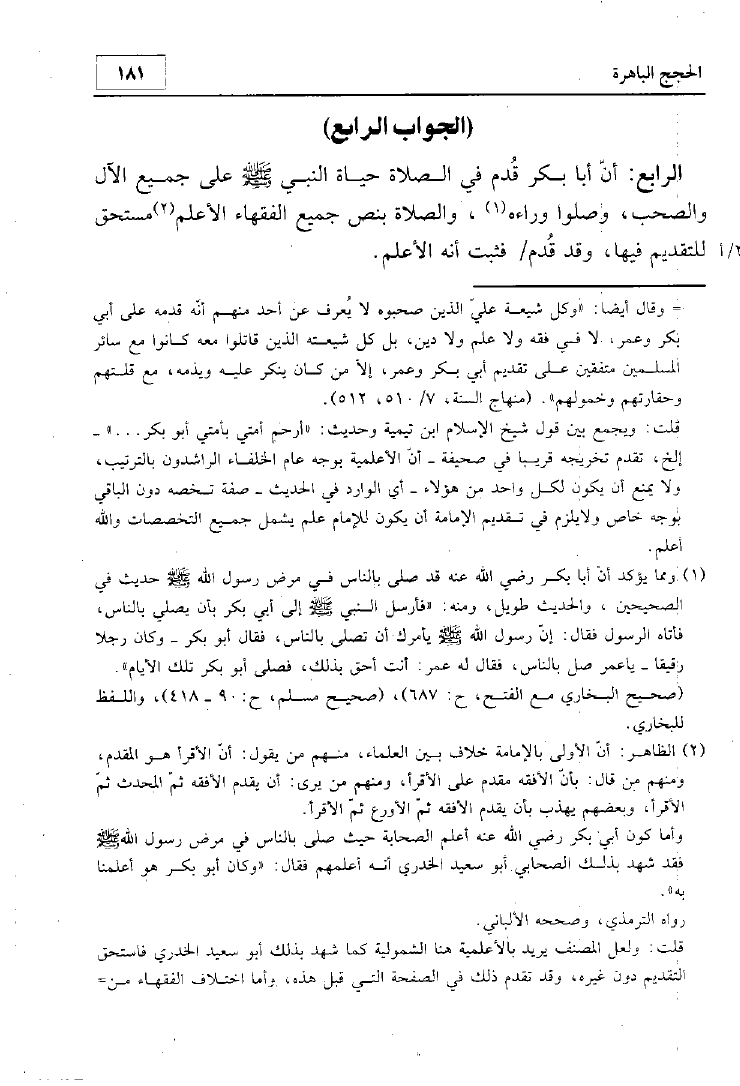 الحجج الباهرة
١٨١
(الجواب الرابع)
الرابع: أنّ أبا بكر قُدم في الصلاة حياة النبي ﷺ على جميع الآل
والصحب، وصلوا وراءه(١)، والصلاة بنص جميع الفقهاء الأعلم(٢)مستحق
للتقديم فيها، وقد قُدم/ فثبت أنه الأعلم.
= وقال أيضا: «وكل شيعة عليّ الذين صحبوه لا يُعرف عن أحد منهم أنّه قدمه على أبي
بكر وعمر، لا في فقه ولا علم ولا دين، بل كل شيعته الذين قاتلوا معه كانوا مع سائر
المسلمين متفقين على تقديم أبي بكر وعمر، إلاّ من كان ينكر عليه ويذمه، مع قلتهم
وحقارتهم وخمولهم». (منهاج السنة، ٧/ ٥١٠، ٥١٢).
قلت: ويجمع بين قول شيخ الإسلام ابن تيمية وحديث: «أرحم أمتي بأمتي أبو بكر...» ـ
إلخ، تقدم تخريجه قريبا في صحيفة ـ أنّ الأعلمية بوجه عام الخلفاء الراشدون بالترتيب،
ولا يمنع أن يكون لكل واحد من هؤلاء ـ أي الوارد في الحديث ـ صفة تخصه دون الباقي
بوجه خاص ولايلزم في تقديم الإمامة أن يكون للإمام علم يشمل جميع التخصصات والله
أعلم.
(١) ومما يؤكد أنّ أبا بكر رضي الله عنه قد صلى بالناس في مرض رسول الله ﷺ حديث في
الصحيحين، والحديث طويل، ومنه: «فأرسل النبي ﷺ إلى أبي بكر بأن يصلي بالناس،
فأتاه الرسول فقال: إنّ رسول الله ﷺ يأمرك أن تصلى بالناس، فقال أبو بكر ـ وكان رجلا
رقيقا ـ ياعمر صل بالناس، فقال له عمر: أنت أحق بذلك، فصلى أبو بكر تلك الأيام».
(صحيح البخاري مع الفتح، ح: ٦٨٧)، (صحيح مسلم، ح: ٩٠ ـ ٤١٨)، واللفظ
للبخاري.
(٢) الظاهر: أنّ الأولى بالإمامة خلاف بين العلماء، منهم من يقول: أنّ الأقرأ هو المقدم،
ومنهم من قال: بأنّ الأفقه مقدم على الأقرأ، ومنهم من يرى: أن يقدم الأفقه ثمّ المحدث ثمّ
الأقرأ، وبعضهم يهذب بأن يقدم الأفقه ثمّ الأورع ثمّ الأقرأ.
وأما كون أبي بكر رضي الله عنه أعلم الصحابة حيث صلى بالناس في مرض رسول الله ﷺ
فقد شهد بذلك الصحابي أبو سعيد الخدري أنه أعلمهم فقال: «وكان أبو بكر هو أعلمنا
به».
رواه الترمذي، وصححه الألباني.
قلت: ولعل المصنف يريد بالأعلمية هنا الشمولية كما شهد بذلك أبو سعيد الخدري فاستحق
التقديم دون غيره، وقد تقدم ذلك في الصفحة التي قبل هذه، وأما اختلاف الفقهاء من=